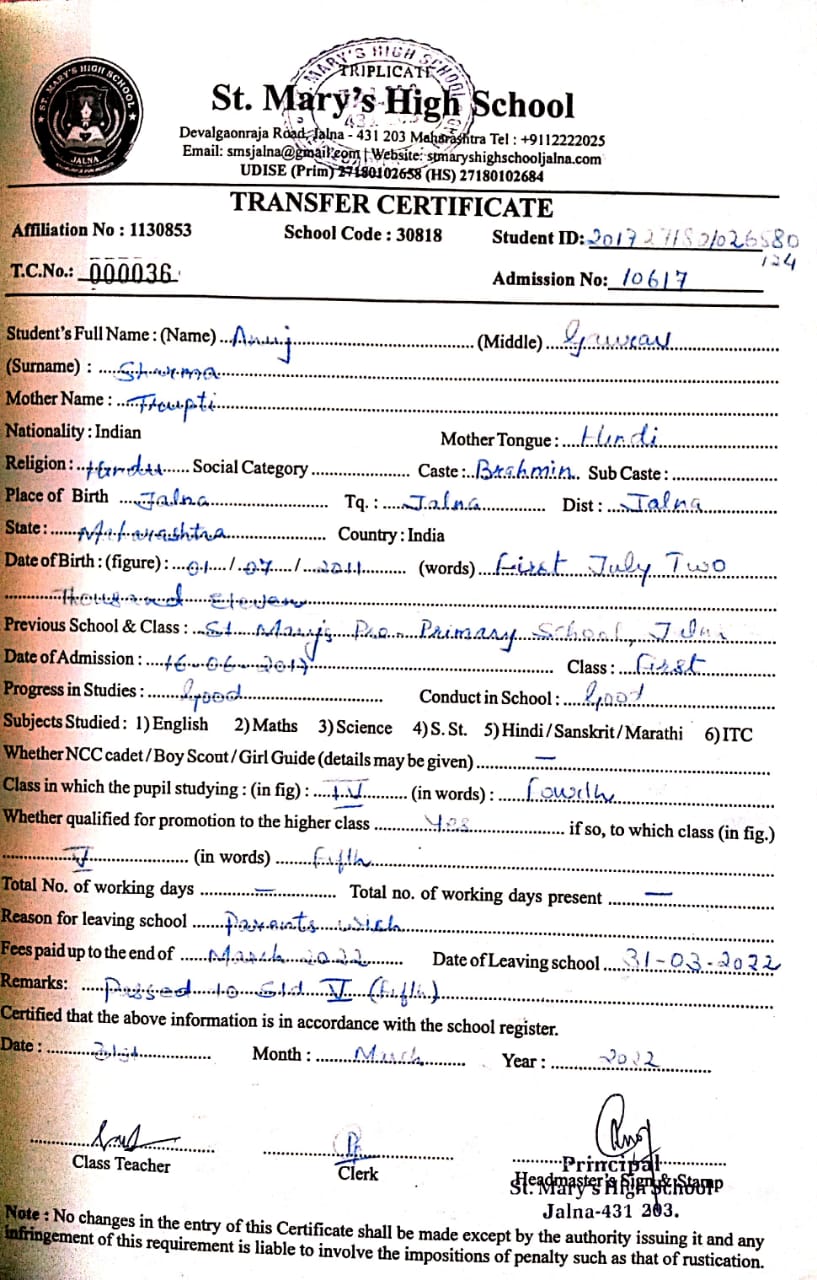 ST. MARY'S HIGH SCHOOL
JALNA
MARY'S HIGH SCHOOL
TRIPLICATE
St. Mary's High School
Devalgaonraja Road, Jalna - 431 203 Maharashtra Tel : +9112222025
Email: smsjalna@gmail.com | Website: stmaryshighschooljalna.com
UDISE (Prim) 27180102658 (HS) 27180102684
TRANSFER CERTIFICATE
Affiliation No : 1130853 School Code : 30818 Student ID: 201727180/026580
124
T.C.No.: 000036 Admission No: 10617
Student's Full Name : (Name) Anuj (Middle) Gaurav
(Surname) : Sharma
Mother Name : Trupti
Nationality : Indian Mother Tongue : Hindi
Religion : Hindu Social Category Caste : Brahmin Sub Caste :
Place of Birth Jalna Tq. : Jalna Dist : Jalna
State : Maharashtra Country : India
Date of Birth : (figure) : 01 / 07 / 2011 (words) First July Two
Thousand Eleven
Previous School & Class : St. Mary's Pre-Primary School, Jalna
Date of Admission : 16-06-2017 Class : First
Progress in Studies : Good Conduct in School : Good
Subjects Studied : 1) English 2) Maths 3) Science 4) S. St. 5) Hindi / Sanskrit / Marathi 6) ITC
Whether NCC cadet / Boy Scout / Girl Guide (details may be given) —
Class in which the pupil studying : (in fig) : IV (in words) : Fourth
Whether qualified for promotion to the higher class Yes if so, to which class (in fig.)
V (in words) Fifth
Total No. of working days — Total no. of working days present —
Reason for leaving school Parents wish
Fees paid up to the end of March 2022 Date of Leaving school 31-03-2022
Remarks: Passed to Std V (Fifth)
Certified that the above information is in accordance with the school register.
Date : Month : March Year : 2022
Class Teacher Clerk Principal
Headmaster's Sign & Stamp
St. Mary's High School
Jalna-431 203.
Note : No changes in the entry of this Certificate shall be made except by the authority issuing it and any
infringement of this requirement is liable to involve the impositions of penalty such as that of rustication.